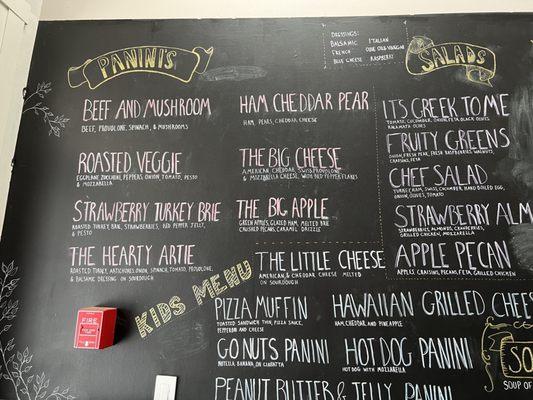 PANINI'S
BEEF AND MUSHROOM
BEEF, PROVOLONE, SPINACH, & MUSHROOMS
ROASTED VEGGIE
EGGPLANT, ZUCCHINI, PEPPERS, ONION, TOMATO, PESTO
& MOZZARELLA
STRAWBERRY TURKEY BRIE
ROASTED TURKEY, BRIE, STRAWBERRIES, RED PEPPER JELLY,
& PESTO
THE HEARTY ARTIE
ROASTED TURKEY, ARTICHOKES, ONION, SPINACH, TOMATO, PROVOLONE,
& BALSAMIC DRESSING ON SOURDOUGH
HAM CHEDDAR PEAR
HAM, PEARS, CHEDDAR CHEESE
THE BIG CHEESE
AMERICAN, CHEDDAR, SWISS, PROVOLONE
& MOZZARELLA CHEESE, WITH RED PEPPER FLAKES
THE BIG APPLE
GREEN APPLES, GLAZED HAM, MELTED BRIE
CRUSHED PECANS, CARAMEL DRIZZLE
DRESSINGS:
BALSAMIC ITALIAN
FRENCH OLIVE OIL & VINEGAR
BLUE CHEESE RASPBERRY
SALADS
ITS GREEK TO ME
TOMATO, CUCUMBER, ONION, FETA, BLACK OLIVES,
KALAMATA OLIVES
FRUITY GREENS
ONION, FRESH PEAR, FRESH RASPBERRIES, WALNUTS,
CRAISINS, FETA
CHEF SALAD
TURKEY, HAM, SWISS, CUCUMBER, HARD BOILED EGG,
ONION, OLIVES, TOMATO
STRAWBERRY ALM
STRAWBERRIES, ALMONDS, CRANBERRIES,
GRILLED CHICKEN, MOZZARELLA
APPLE PECAN
APPLES, CRAISINS, PECANS, FETA, GRILLED CHICKEN
KIDS MENU
THE LITTLE CHEESE
AMERICAN, & CHEDDAR CHEESE MELTED
ON SOURDOUGH
PIZZA MUFFIN
TOASTED SANDWICH THIN, PIZZA SAUCE,
PEPPERONI AND CHEESE
HAWAIIAN GRILLED CHEES
HAM, CHEDDAR AND PINEAPPLE
GO NUTS PANINI
NUTELLA, BANANA ON CIABATTA
HOT DOG PANINI
HOT DOG WITH MOZZARELLA
PEANUT BUTTER & JELLY PANINI
SOU
SOUP OF
FIRE